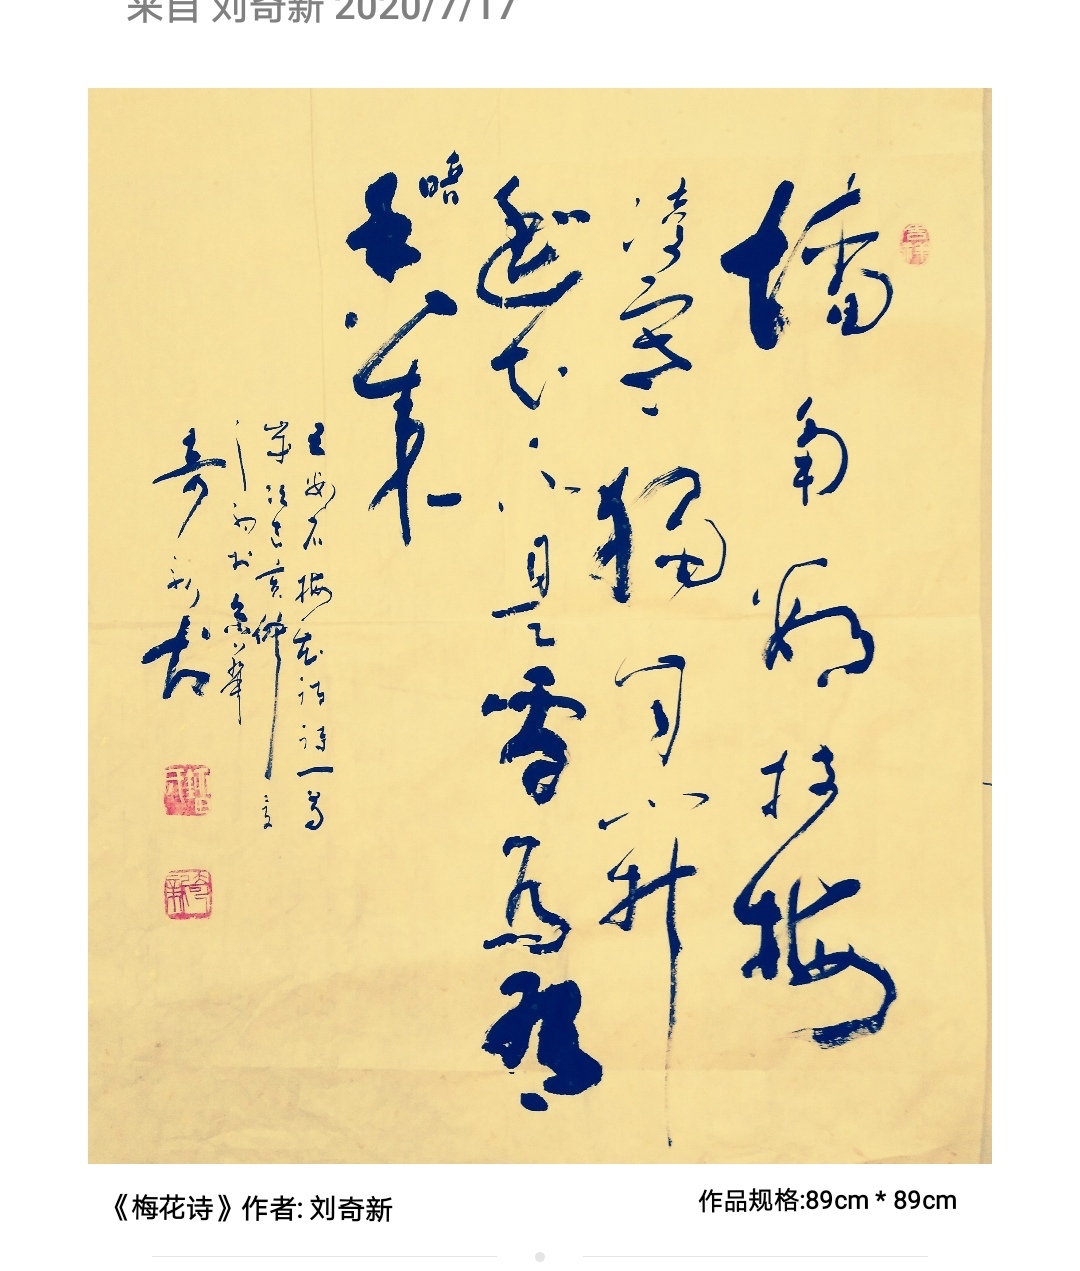 来自 刘奇新 2020/7/17
墙角数枝梅
凌寒獨自開
遥知不是雪為有
暗香来
王安石梅花诗诗一首
岁次己亥仲夏
奇新書
《梅花诗》作者: 刘奇新
作品规格:89cm * 89cm